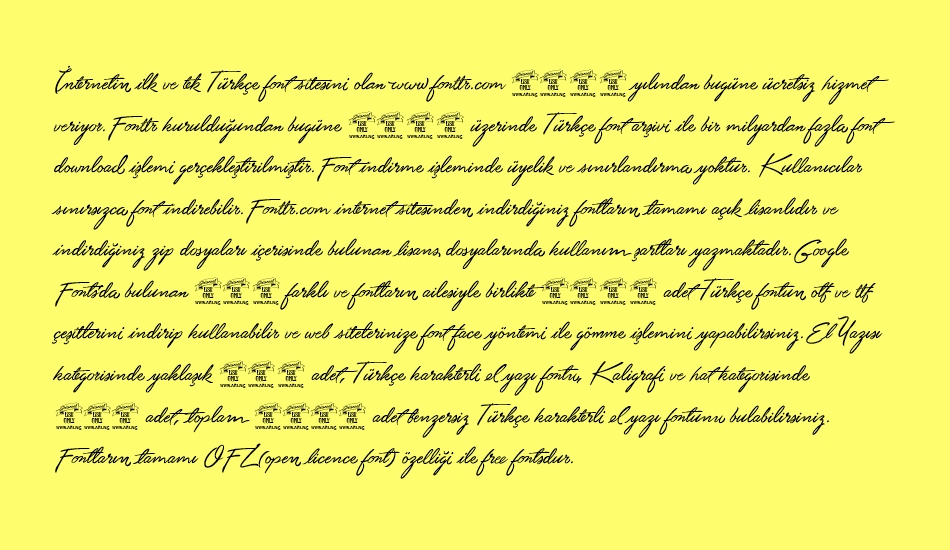 İnternetin ilk ve tek Türkçe font sitesini olan www.fonttr.com yılından bugüne ücretsiz hizmet
veriyor. Fonttr kurulduğundan bugüne üzerinde Türkçe font arşivi ile bir milyardan fazla font
download işlemi gerçekleştirilmiştir. Font indirme işleminde üyelik ve sınırlandırma yoktur. Kullanıcılar
sınırsızca font indirebilir. Fonttr.com internet sitesinden indirdiğiniz fontların tamamı açık lisanlıdır ve
indirdiğiniz zip dosyaları içerisinde bulunan lisans dosyalarında kullanım şartları yazmaktadır. Google
Fonts'da bulunan farklı ve fontların ailesiyle birlikte adet Türkçe fontun otf ve ttf
çeşitlerini indirip kullanabilir ve web sitelerinize font face yöntemi ile gömme işlemini yapabilirsiniz. El Yazısı
kategorisinde yaklaşık adet, Türkçe karakterli el yazı fontu, Kaligrafi ve hat kategorisinde
adet, toplam adet benzersiz Türkçe karakterli el yazı fontunu bulabilirsiniz.
Fontların tamamı OFL(open licence font) özelliği ile free fontsdur.